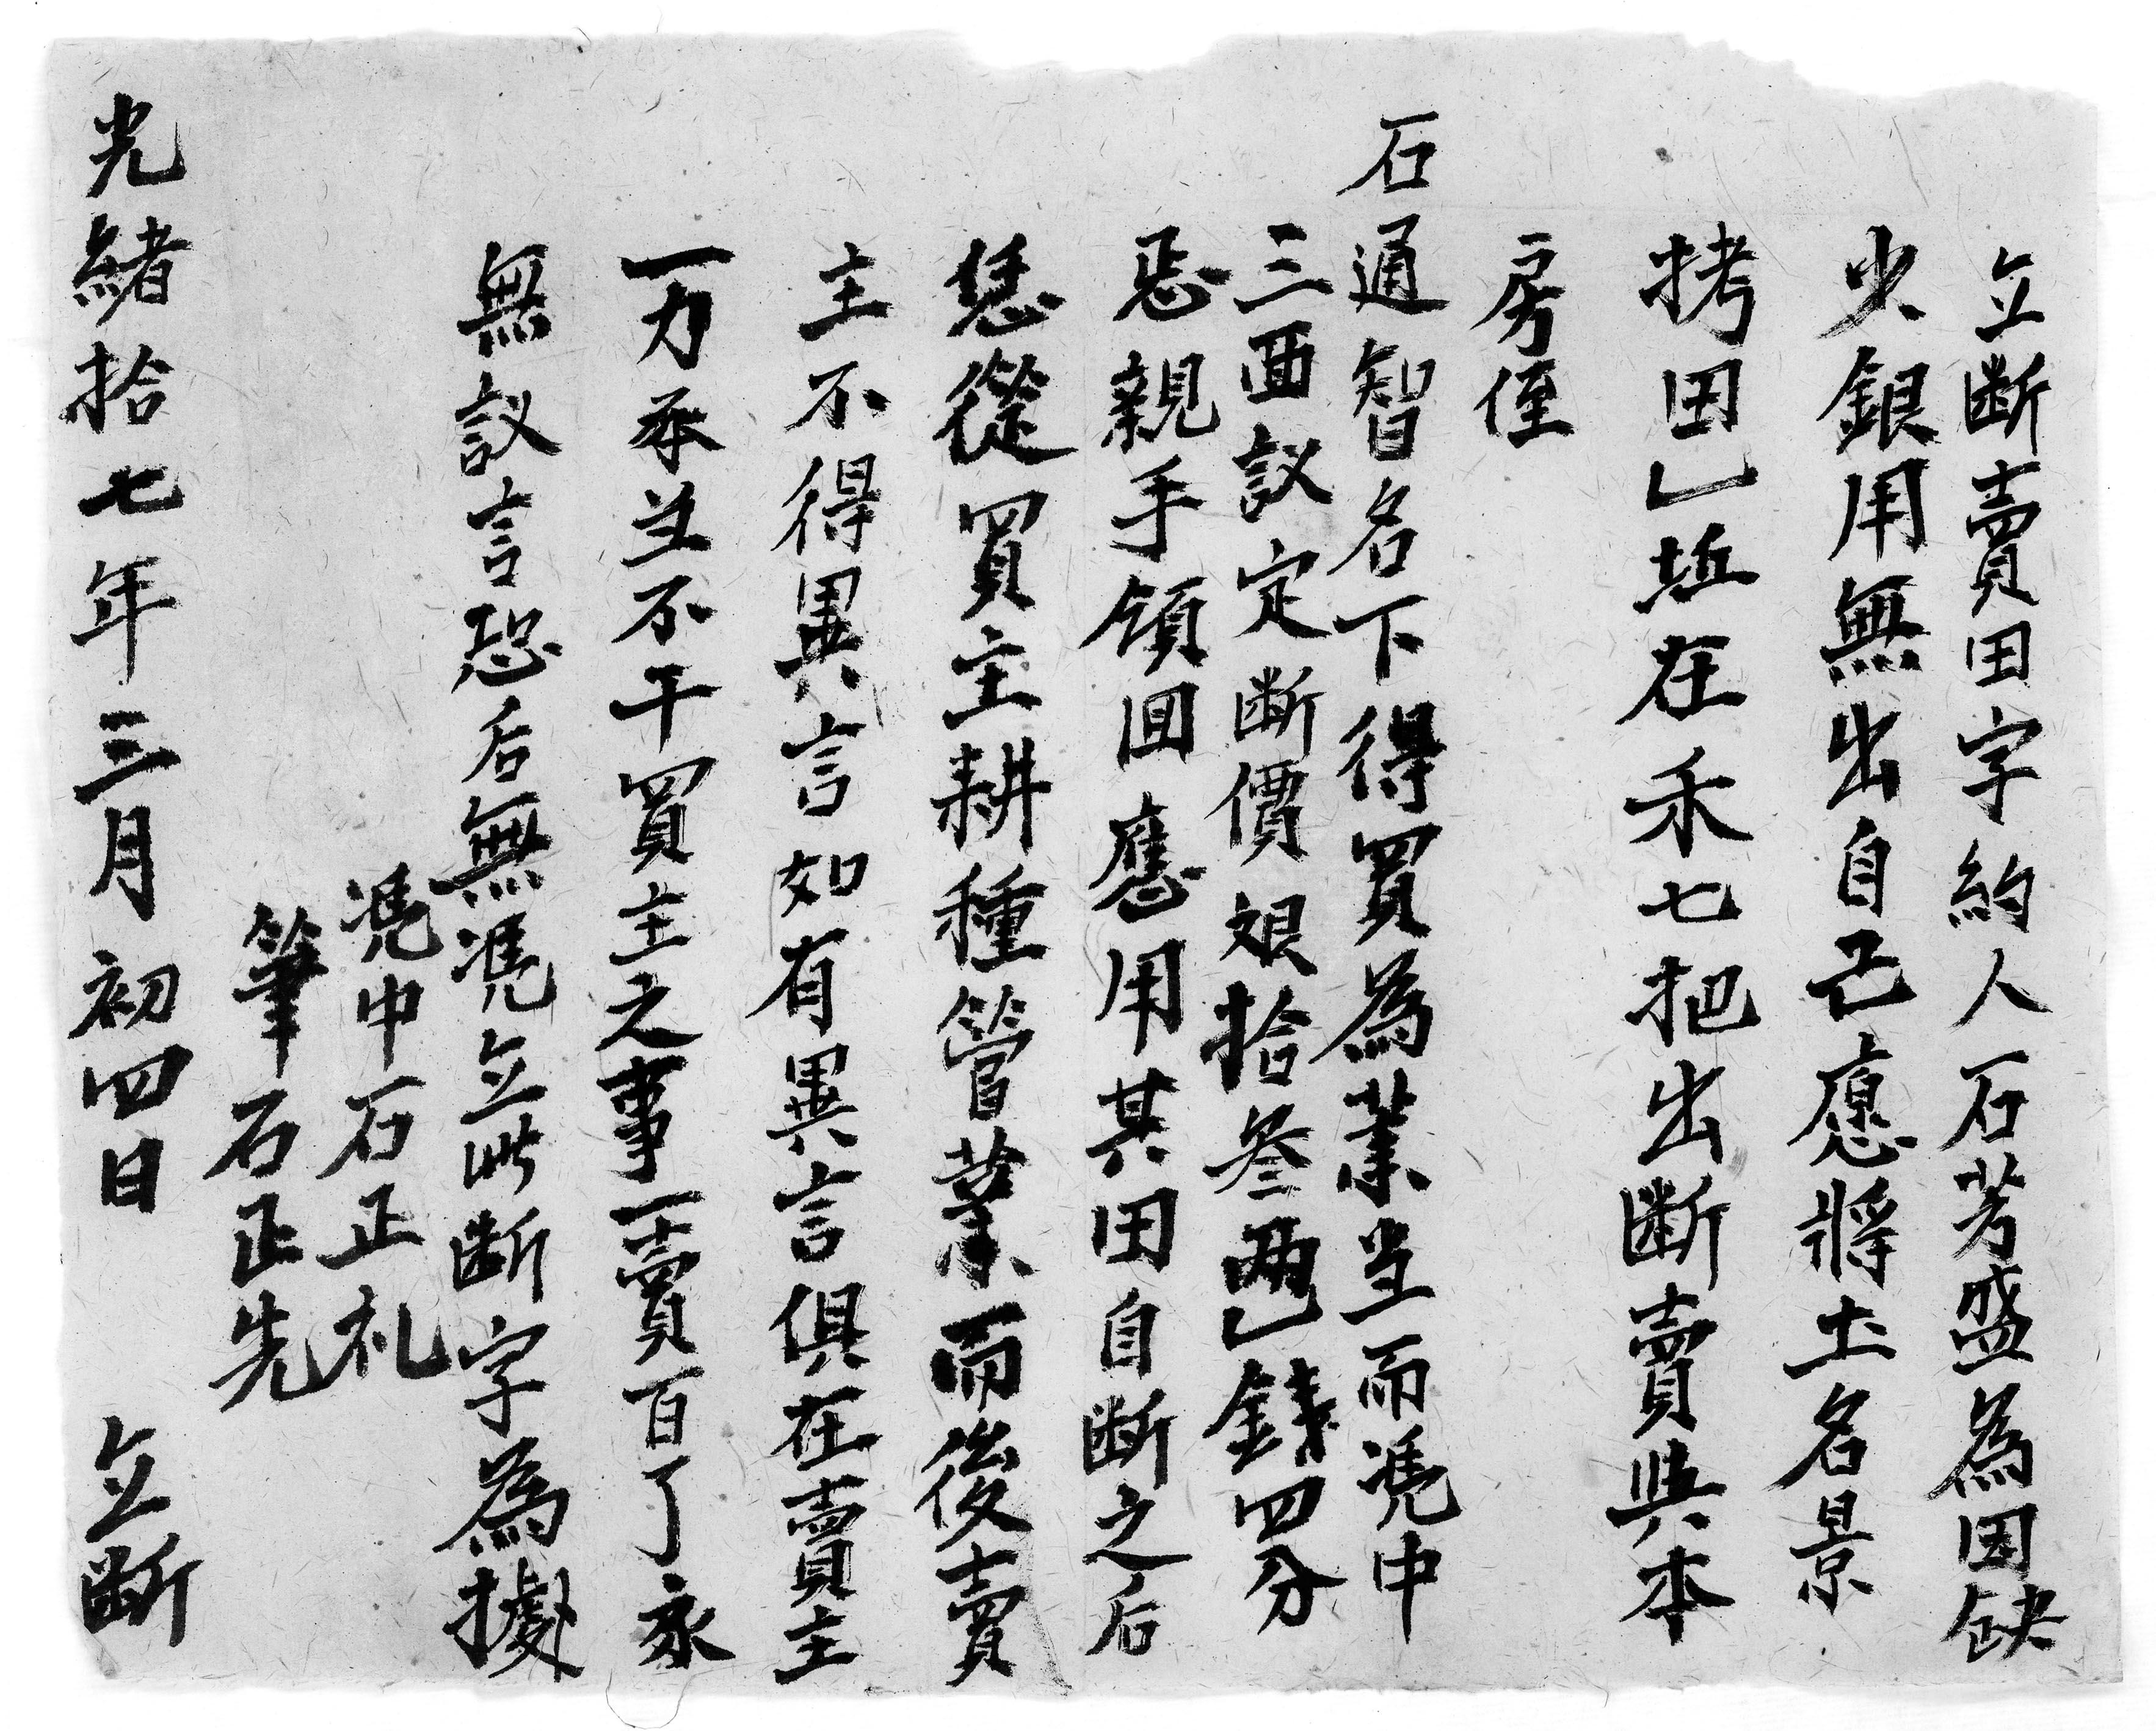 立断賣田字約人石芳盛為因缺
少銀用無出自己應將土名景
拷田乚坵在禾七把出断賣與本
房侄
石通智名下得買為業当面凴中
三面議定断價艮拾叁両乚錢四分
親手領回應用其田自断之后
恁從買主耕種管業而後賣
主不得異言如有異言俱在賣主
一力承並不干買主之事一賣百了永
無議言恐后無凴立此断字為據
凴中石正礼
筆石正先
光緒拾七年三月初四日 立断